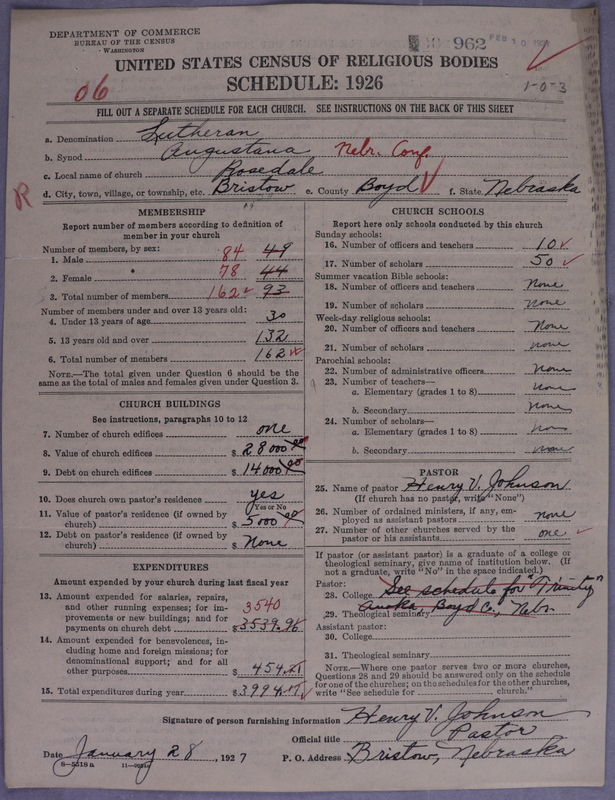 DEPARTMENT OF COMMERCE
BUREAU OF THE CENSUS
WASHINGTON
962 FEB 10
UNITED STATES CENSUS OF RELIGIOUS BODIES
SCHEDULE: 1926
06
1-0-3
FILL OUT A SEPARATE SCHEDULE FOR EACH CHURCH. SEE INSTRUCTIONS ON THE BACK OF THIS SHEET
a. Denomination Lutheran
b. Synod Augustana Nebr. Conf.
c. Local name of church Rosedale
d. City, town, village, or township, etc. Bristow e. County Boyd f. State Nebraska
R
MEMBERSHIP
Report number of members according to definition of
member in your church
Number of members, by sex:
1. Male 84 49
2. Female 78 44
3. Total number of members 162 93
Number of members under and over 13 years old:
4. Under 13 years of age 30
5. 13 years old and over 132
6. Total number of members 162
NOTE.—The total given under Question 6 should be the
same as the total of males and females given under Question 3.
CHURCH BUILDINGS
See instructions, paragraphs 10 to 12
7. Number of church edifices one
8. Value of church edifices $ 28000.00
9. Debt on church edifices $ 14000.00
10. Does church own pastor's residence yes
Yes or No
11. Value of pastor's residence (if owned by
church) $ 5000.00
12. Debt on pastor's residence (if owned by
church) $ None
EXPENDITURES
Amount expended by your church during last fiscal year
13. Amount expended for salaries, repairs,
and other running expenses; for im-
provements or new buildings; and for
payments on church debt 3540 $3539.96
14. Amount expended for benevolences, in-
cluding home and foreign missions; for
denominational support; and for all
other purposes $ 454.21
15. Total expenditures during year $3994.17
CHURCH SCHOOLS
Report here only schools conducted by this church
Sunday schools:
16. Number of officers and teachers 10
17. Number of scholars 50
Summer vacation Bible schools:
18. Number of officers and teachers none
19. Number of scholars none
Week-day religious schools:
20. Number of officers and teachers None
21. Number of scholars none
Parochial schools:
22. Number of administrative officers None
23. Number of teachers—
a. Elementary (grades 1 to 8) none
b. Secondary None
24. Number of scholars—
a. Elementary (grades 1 to 8) none
b. Secondary none
PASTOR
25. Name of pastor Henry V. Johnson
(If church has no pastor, write "None")
26. Number of ordained ministers, if any, em-
ployed as assistant pastors none
27. Number of other churches served by the
pastor or his assistants one
If pastor (or assistant pastor) is a graduate of a college or
theological seminary, give name of institution below. (If
not a graduate, write "No" in the space indicated.)
Pastor:
28. College See schedule for "Trinity"
29. Theological seminary Anoka, Boyd Co., Nebr.
Assistant pastor:
30. College
31. Theological seminary
NOTE.—Where one pastor serves two or more churches,
Questions 28 and 29 should be answered only on the schedule
for one of the churches; on the schedules for the other churches,
write "See schedule for church."
Signature of person furnishing information Henry V. Johnson
Official title Pastor
Date January 28, 1927 P. O. Address Bristow, Nebraska